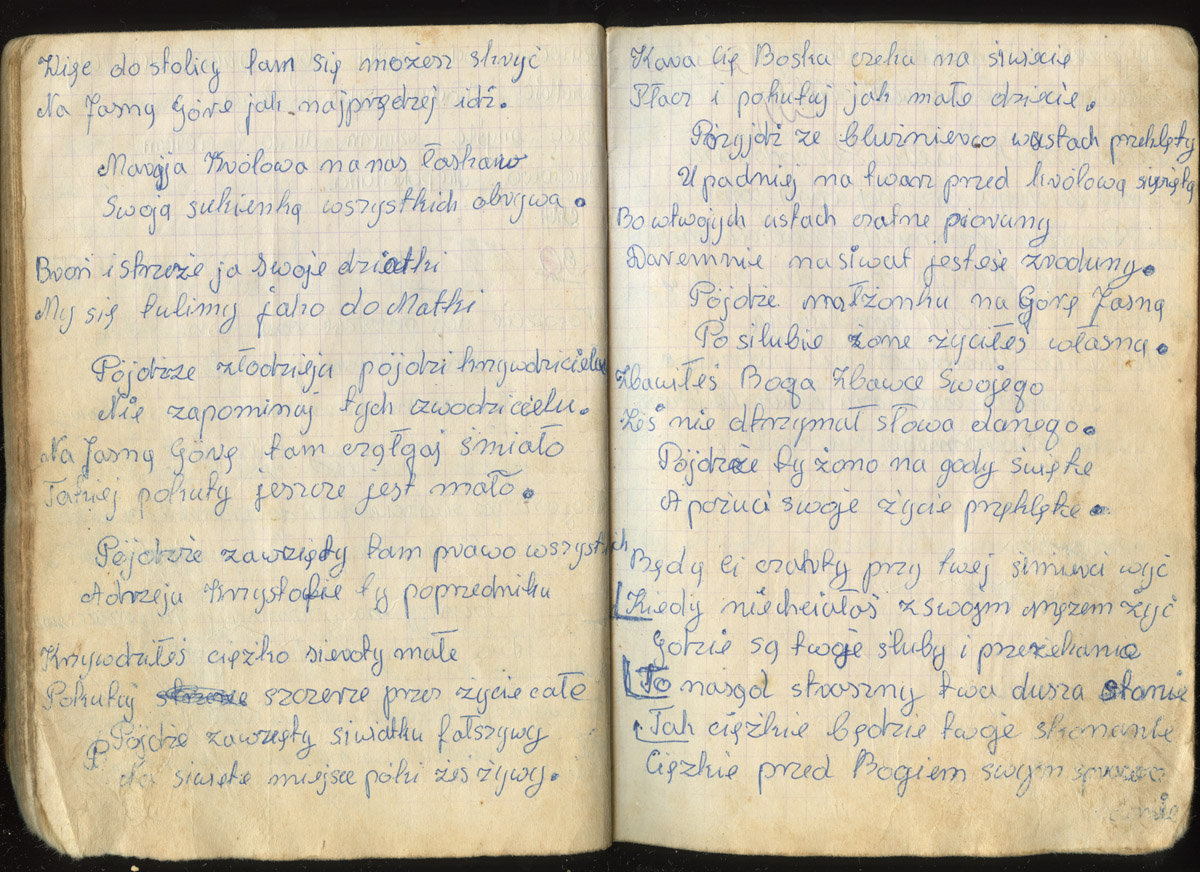 Więc do stolicy tam się możesz skryć
Na Jasną Górę jak najprędzej idź.
Maryja Królowa na nas łaskawo
Swoją sukienką wszystkich okrywa.
Broń i strzeże ja swoje dziatki
My się tulimy jako do Matki
Pójdzże złodzieju pójdzi krzywdzicielu
Nie zapominaj tych zwodzicielu.
Na Jasną Górę tam czołgaj śmiało
Takiej pokuty jeszcze jest mało.
Pójdzże zawzięty tam prawo wszystkich
A drzeju Krzystofie ty poprzedniku
Krzywdziłeś ciężko sieroty małe
Pokutuj szczerze przez życie całe
Pójdże zawzięty siwiatku fałszywy
Na siwięte miejsce póki żeś żywy.
Kara Cię Boska czeka na siwiecie
Płacz i pokutuj jak małe dziecie.
Przyjdź ze bluźnierco w ustach przeklęty
Upadniej na twarz przed królową siwiętą
Bo wtwojych ustach czatne pioruny
Daremnie nasiwat jesteśe zroduny.
Pójdże małżonku na Górę Jasną
Po silubie żone życiłeś własną.
Zbawiłeś Boga Zbawce Swojego
Żeś nie dtrzymał słowa danego.
Pójdzże ty żono na gody święte
A pożuci swoje życie przęklęte.
Będą ci czatrty przy twej śimierci wyć
Kiedy niechciałaś z swojm męzem żyć
Gdzie są twoje śluby i przeżekanie
To nasąd straszny twa dusza stanie
Tak ciężkie będzie twoje skonanie
Ciężkie przed Bogiem swym